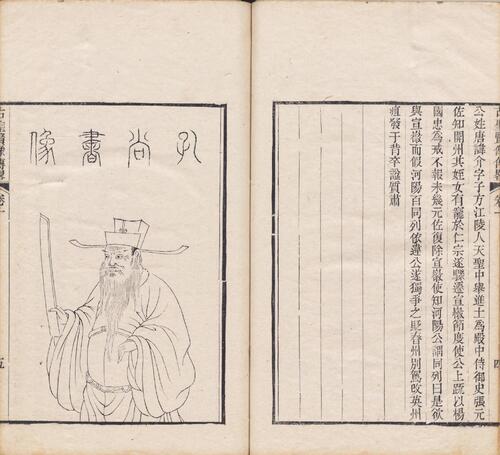 古聖賢像傳畧 卷
四
公姓唐諱介字子方江陵人天聖中舉進士為殿中侍御史張元
佐知開州其姪女有寵於仁宗遂驟遷宣徽節度使公上疏以楊
國忠為戒不報未幾元佐復除宣徽使知河陽公謂同列曰是欲
與宣徽而假河陽耳同列依違公遂獨爭之貶春州別駕改英州
疽發于背卒謚質肅
孔尚書像
古聖賢像傳畧 卷十
五